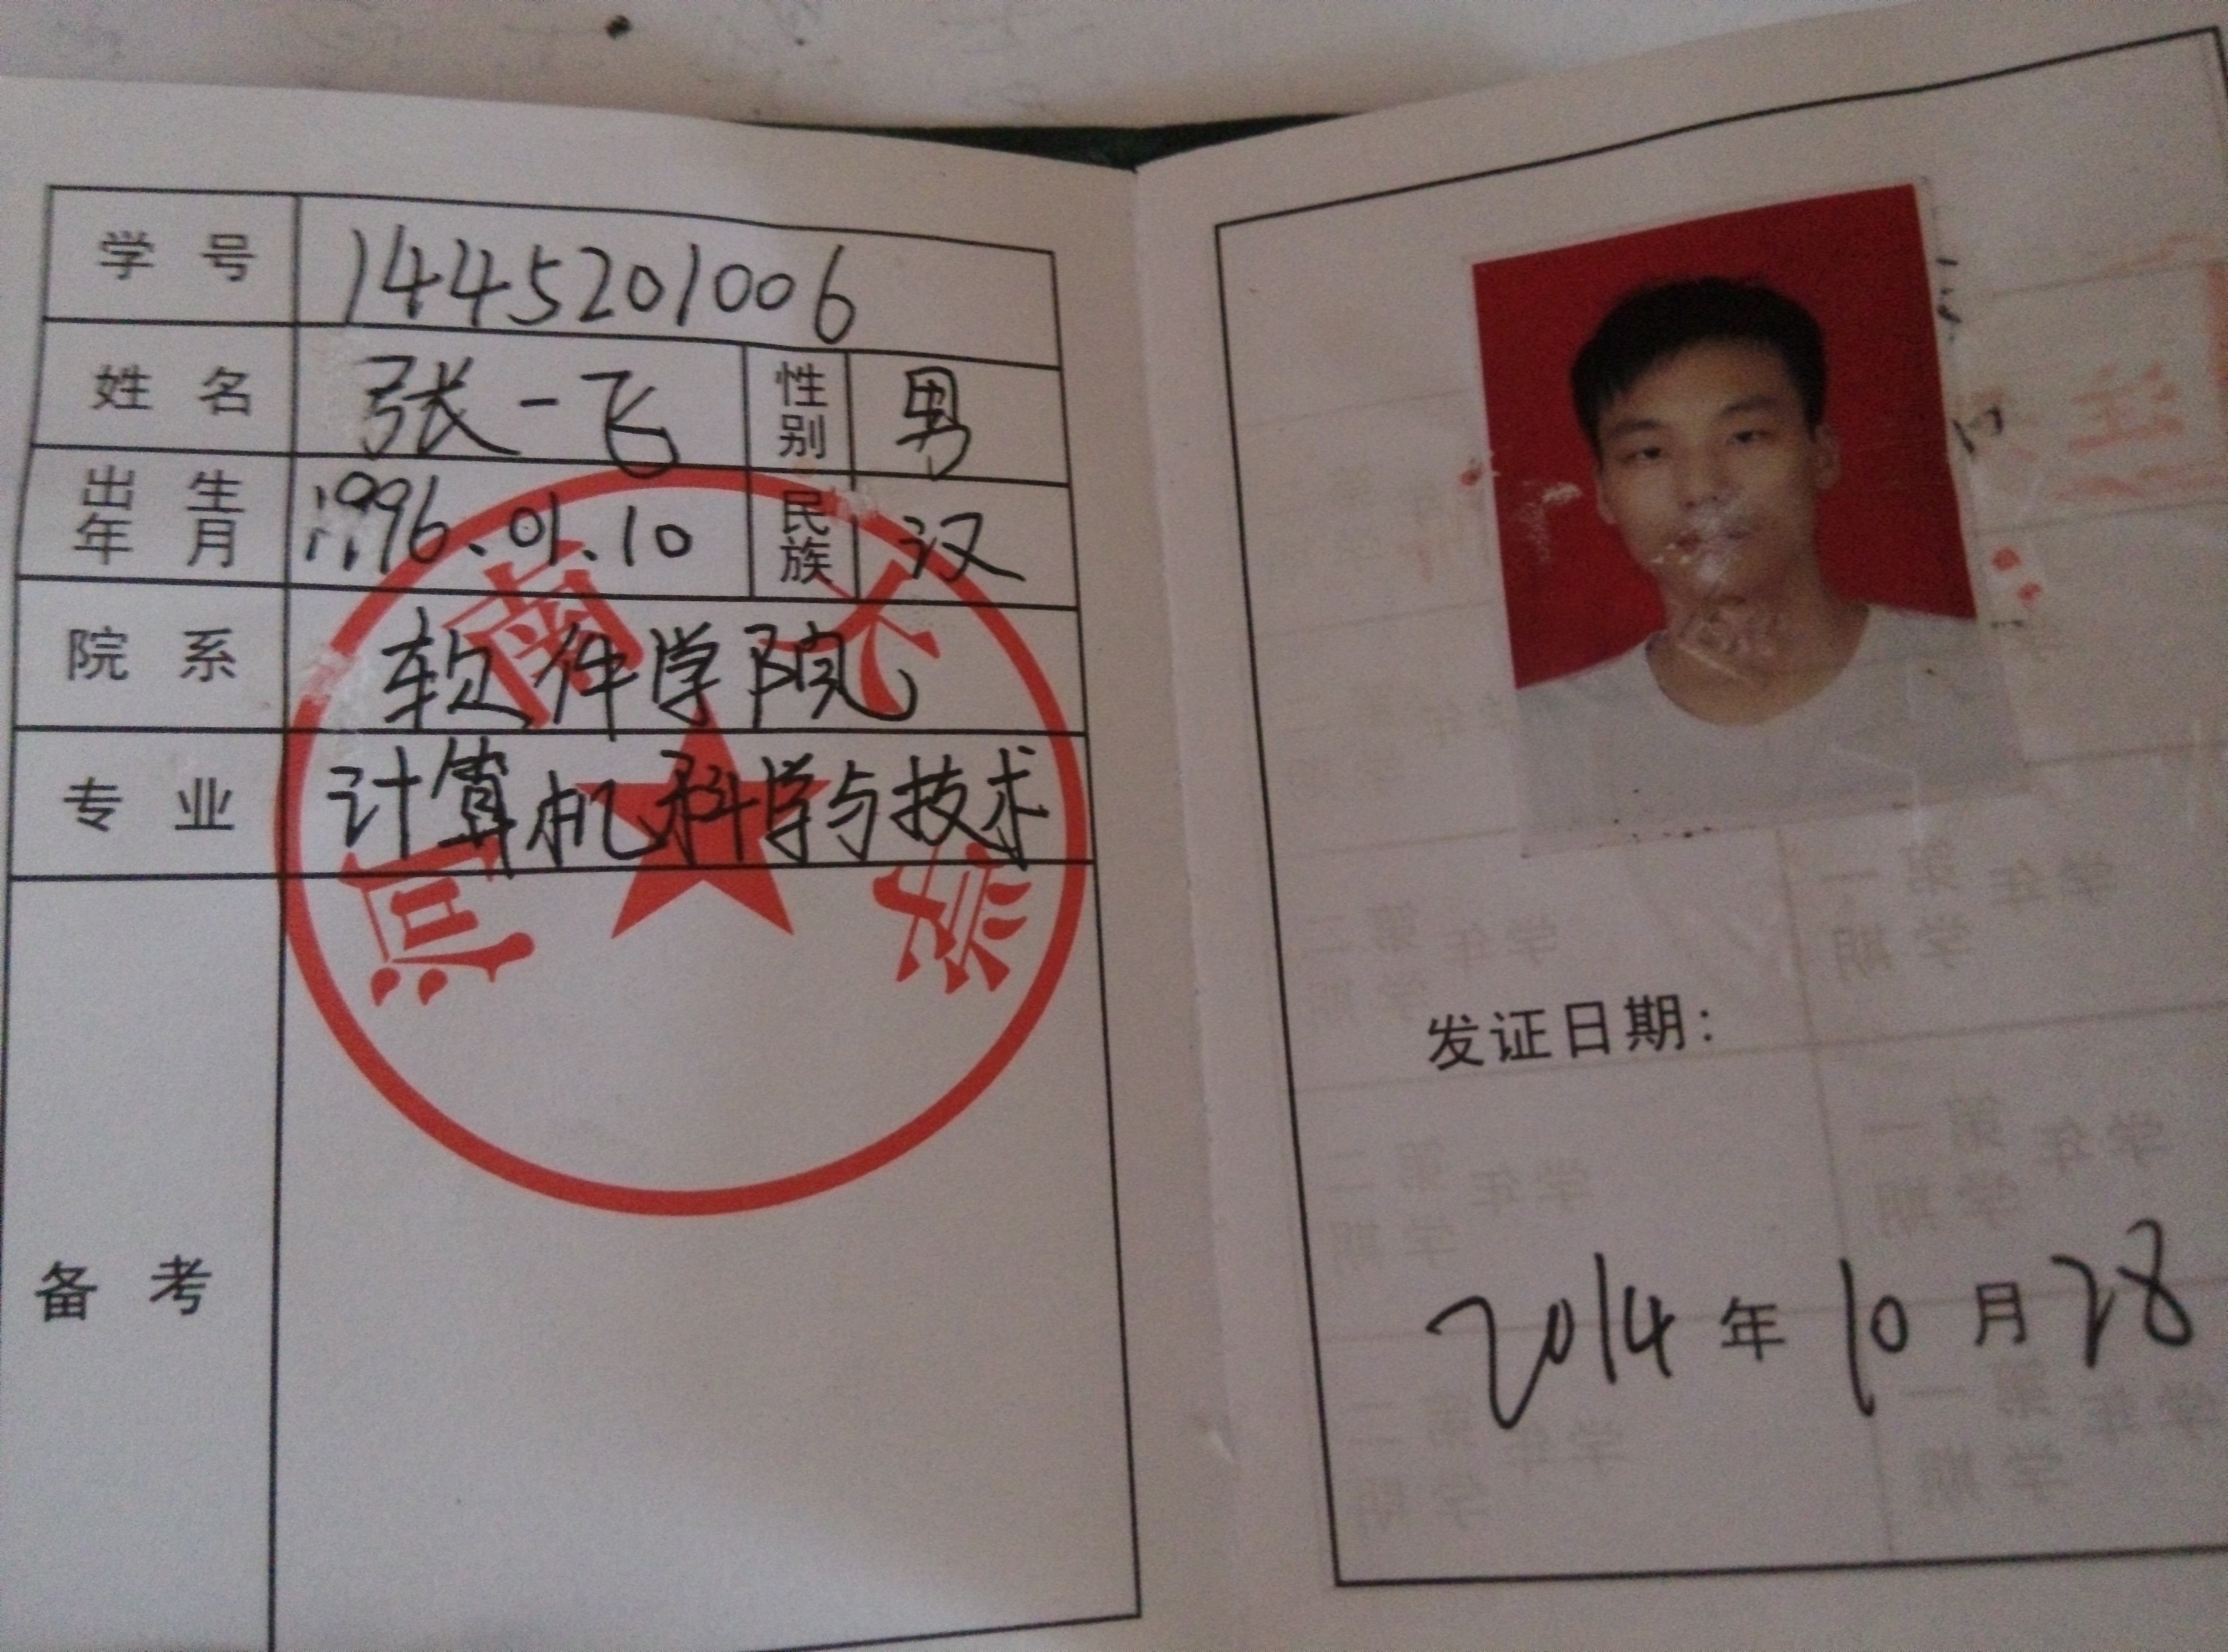 学号 1445201006
姓名 张一飞 性别 男
出生年月 1996.01.10 民族 汉
院系 软件学院
专业 计算机科学与技术
备考
河南大学
发证日期:
2014年10月28